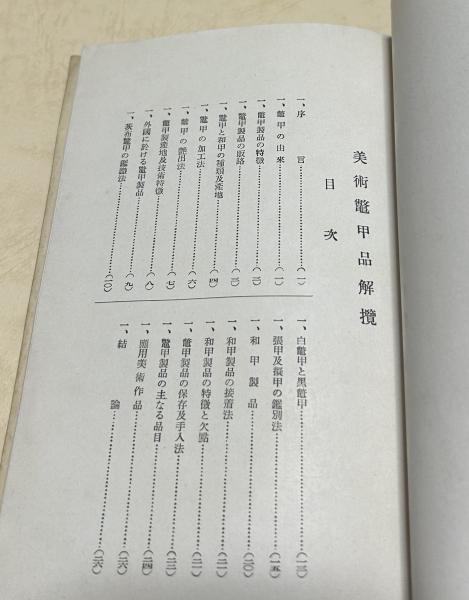 美術鼈甲品解攬
目次
一、序言……………(一)
一、鼈甲の由來……………(一)
一、鼈甲製品の特徵……………(二)
一、鼈甲製品の販路……………(三)
一、鼈甲と和甲の種類及產地……………(四)
一、鼈甲の加工法……………(六)
一、鼈甲の艷出法……………(七)
一、鼈甲製產地及技術特徵……………(八)
一、外國に於ける鼈甲製品……………(九)
一、荻布鼈甲の鑑識法……………(一〇)
一、白鼈甲と黑鼈甲……………(一三)
一、張甲及擬甲の鑑別法……………(一五)
一、和甲製品……………(二〇)
一、和甲製品の接着法……………(二一)
一、和甲製品の特徵と欠點……………(二一)
一、鼈甲製品の保存及手入法……………(二三)
一、鼈甲製品の主なる品目……………(二四)
一、應用美術作品……………(二六)
一、結論……………(二六)